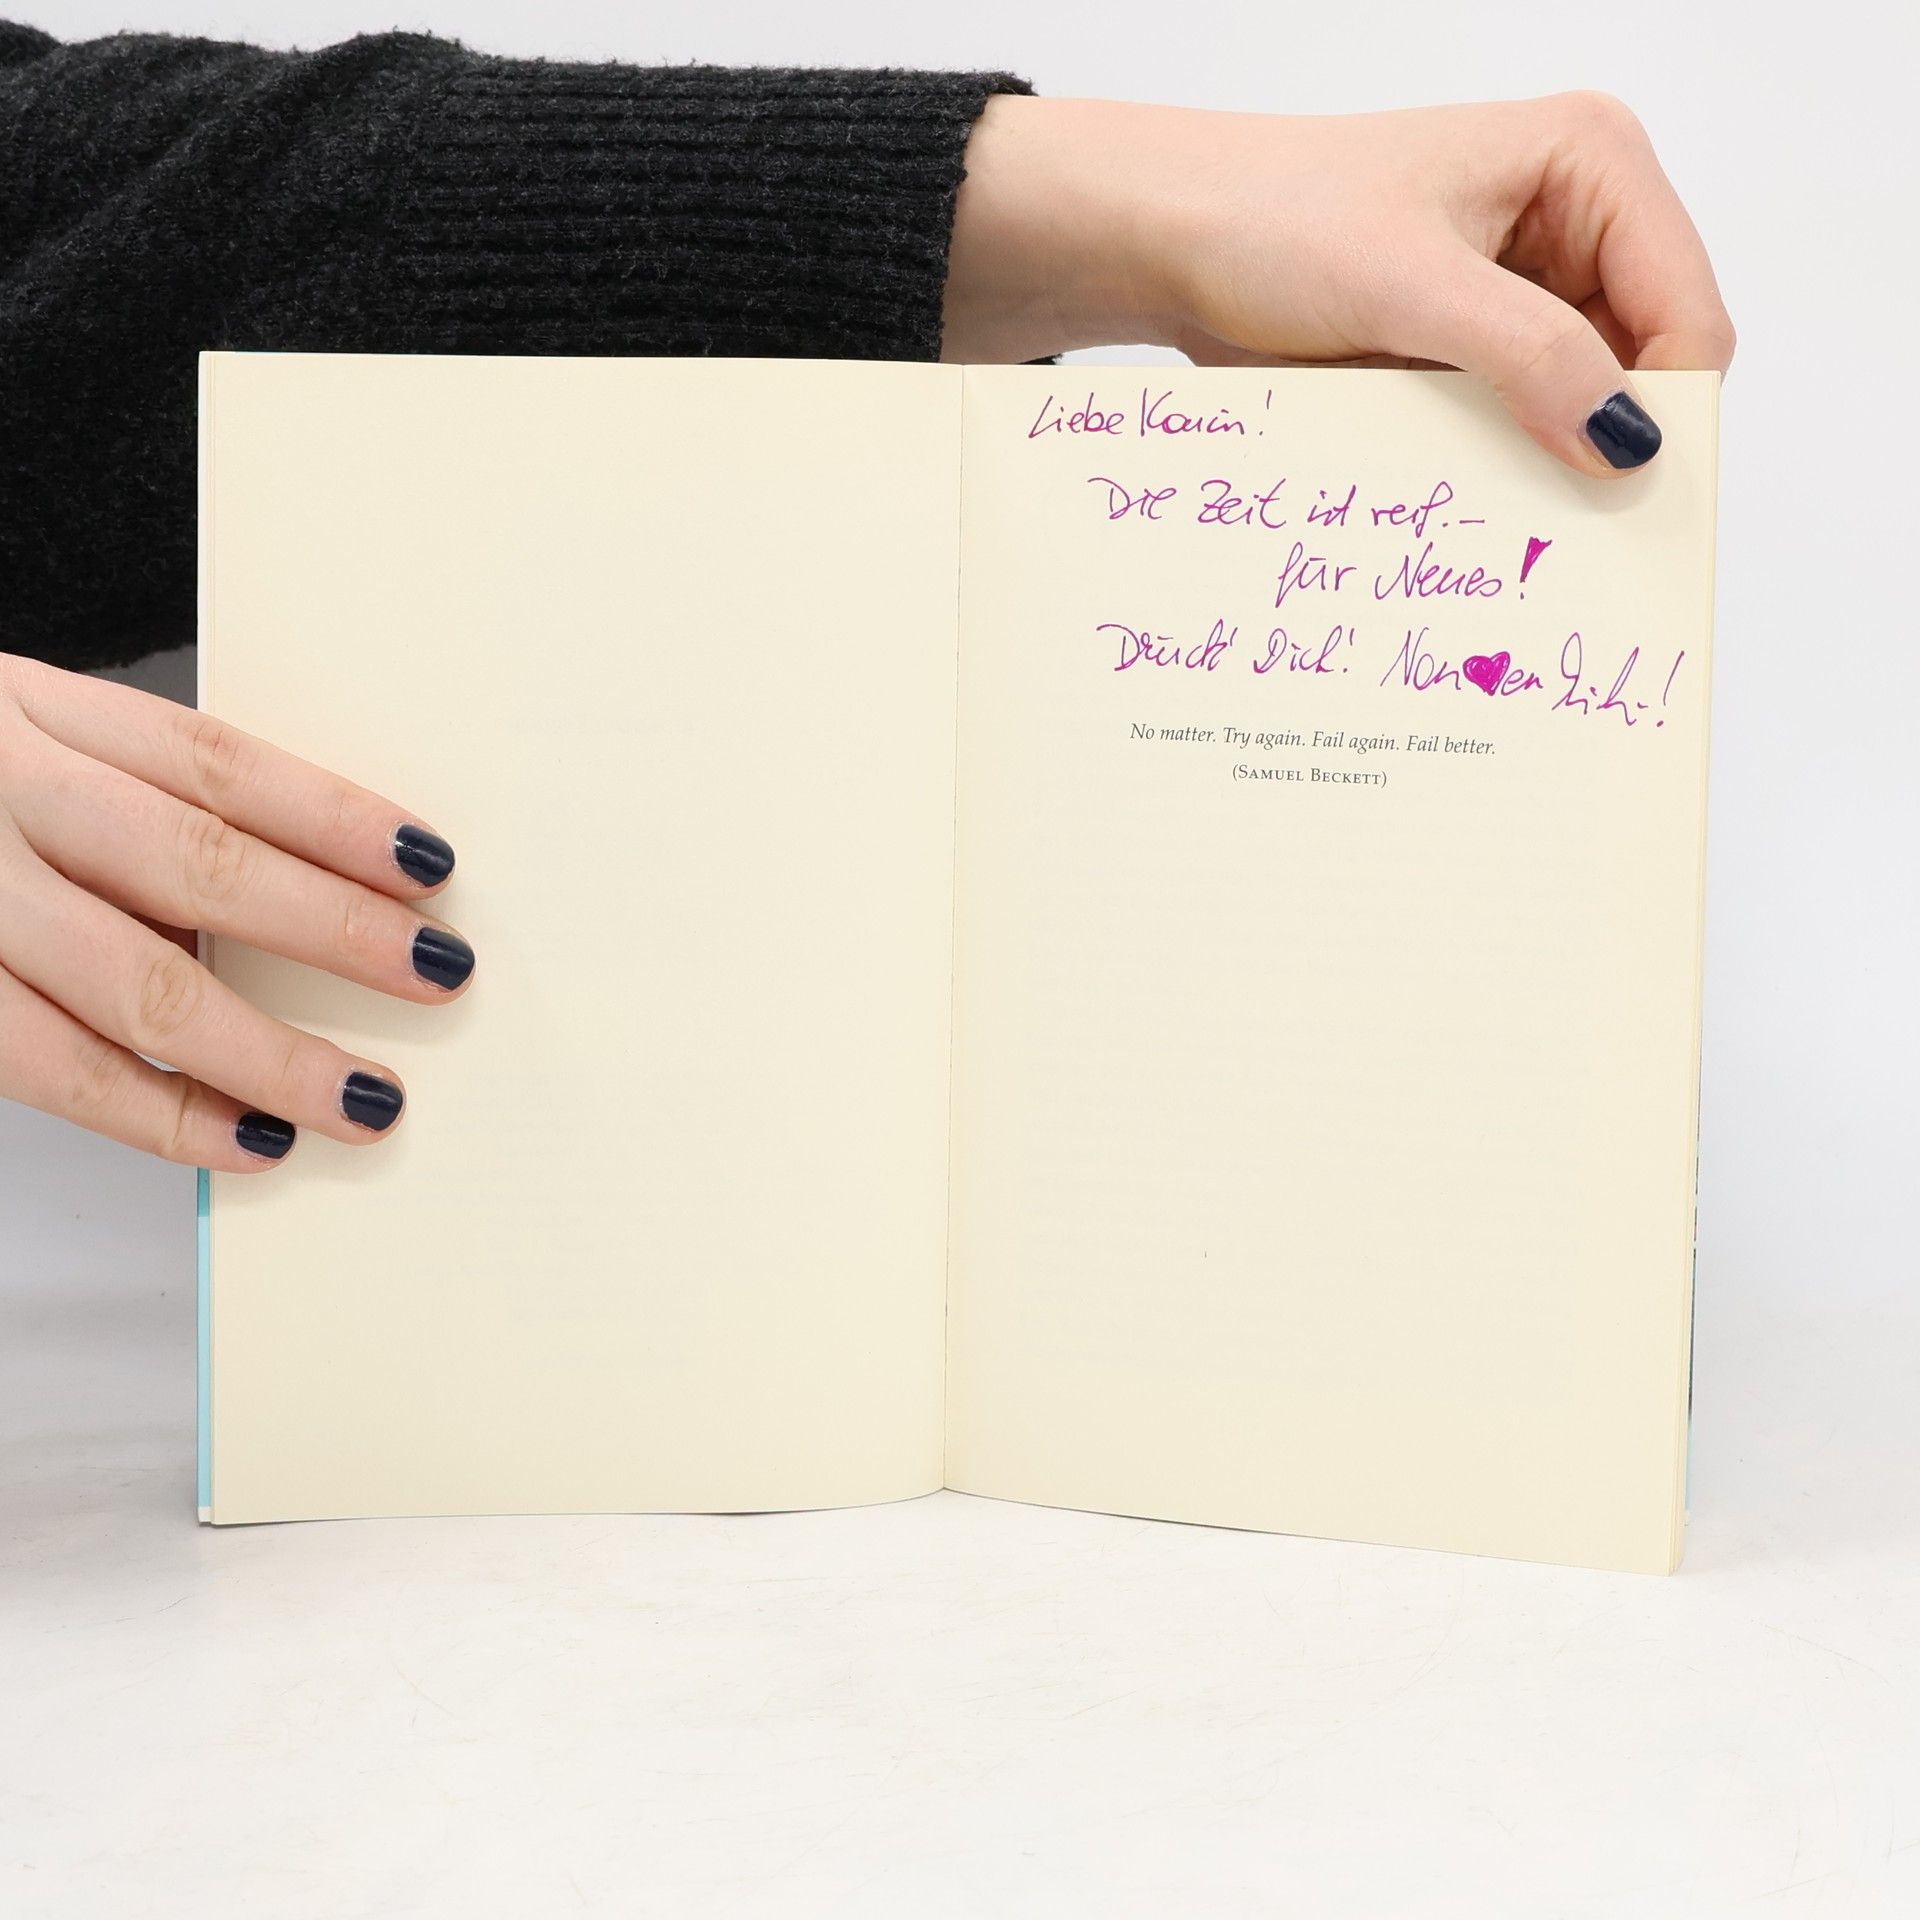 Liebe Karin!
Die Zeit ist reif.–
für Neues!
Drück' Dich!
No matter. Try again. Fail again. Fail better.
(Samuel Beckett)